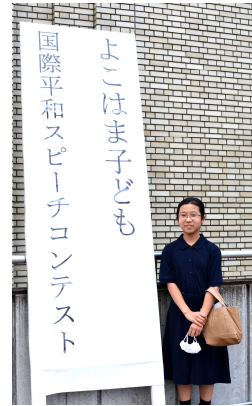 よこはま子ども
国際平和スピーチコンテスト